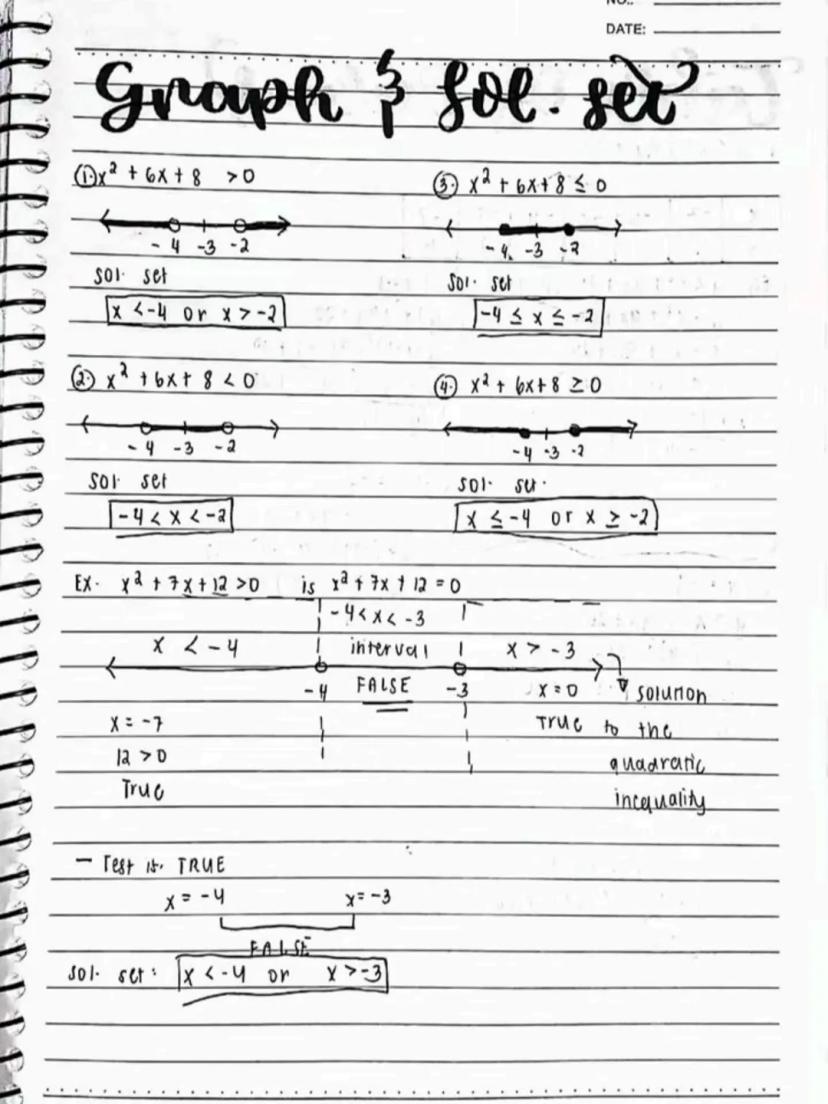 NO.:
DATE:
Graph & Sol. set
①. x² + 6x + 8 > 0
-4 -3 -2
Sol. set
x < -4 or x > -2
③. x² + 6x + 8 ≤ 0
-4 -3 -2
Sol. set
-4 ≤ x ≤ -2
②. x² + 6x + 8 < 0
-4 -3 -2
Sol. set
-4 < x < -2
④. x² + 6x + 8 ≥ 0
-4 -3 -2
Sol. set.
x ≤ -4 or x ≥ -2
Ex. x² + 7x + 12 > 0 is x² + 7x + 12 = 0
-4 < x < -3
x < -4 interval x > -3
-4 FALSE -3 x = 0 solution
x = -7 True to the
12 > 0 quadratic
True inequality
- Test is. TRUE
x = -4 x = -3
FALSE
Sol. set: x < -4 or x > -3